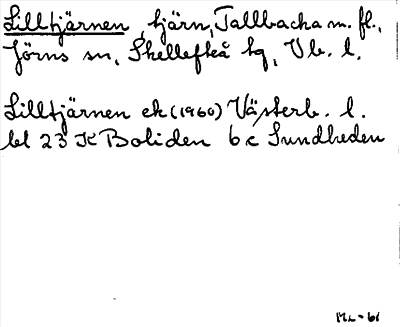 Lilltjärnen, tjärn, Tallbacka m. fl.,
Jörns sn, Skellefteå kg, Vb. l.
Lilltjärnen ek (1960) Västerb. l.
bl 23 K Boliden 6 c Sundheden
ML-61